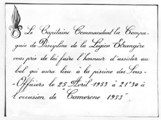 Le Capitaine Commandant la Compagnie
de Discipline de la Légion Etrangère
vous prie de lui faire l'honneur d'assister au
bal qui aura lieu à la piscine des Sous-
Officiers le 25 Avril 1953 à 21h30 à
l'occasion de "Camerone 1953"